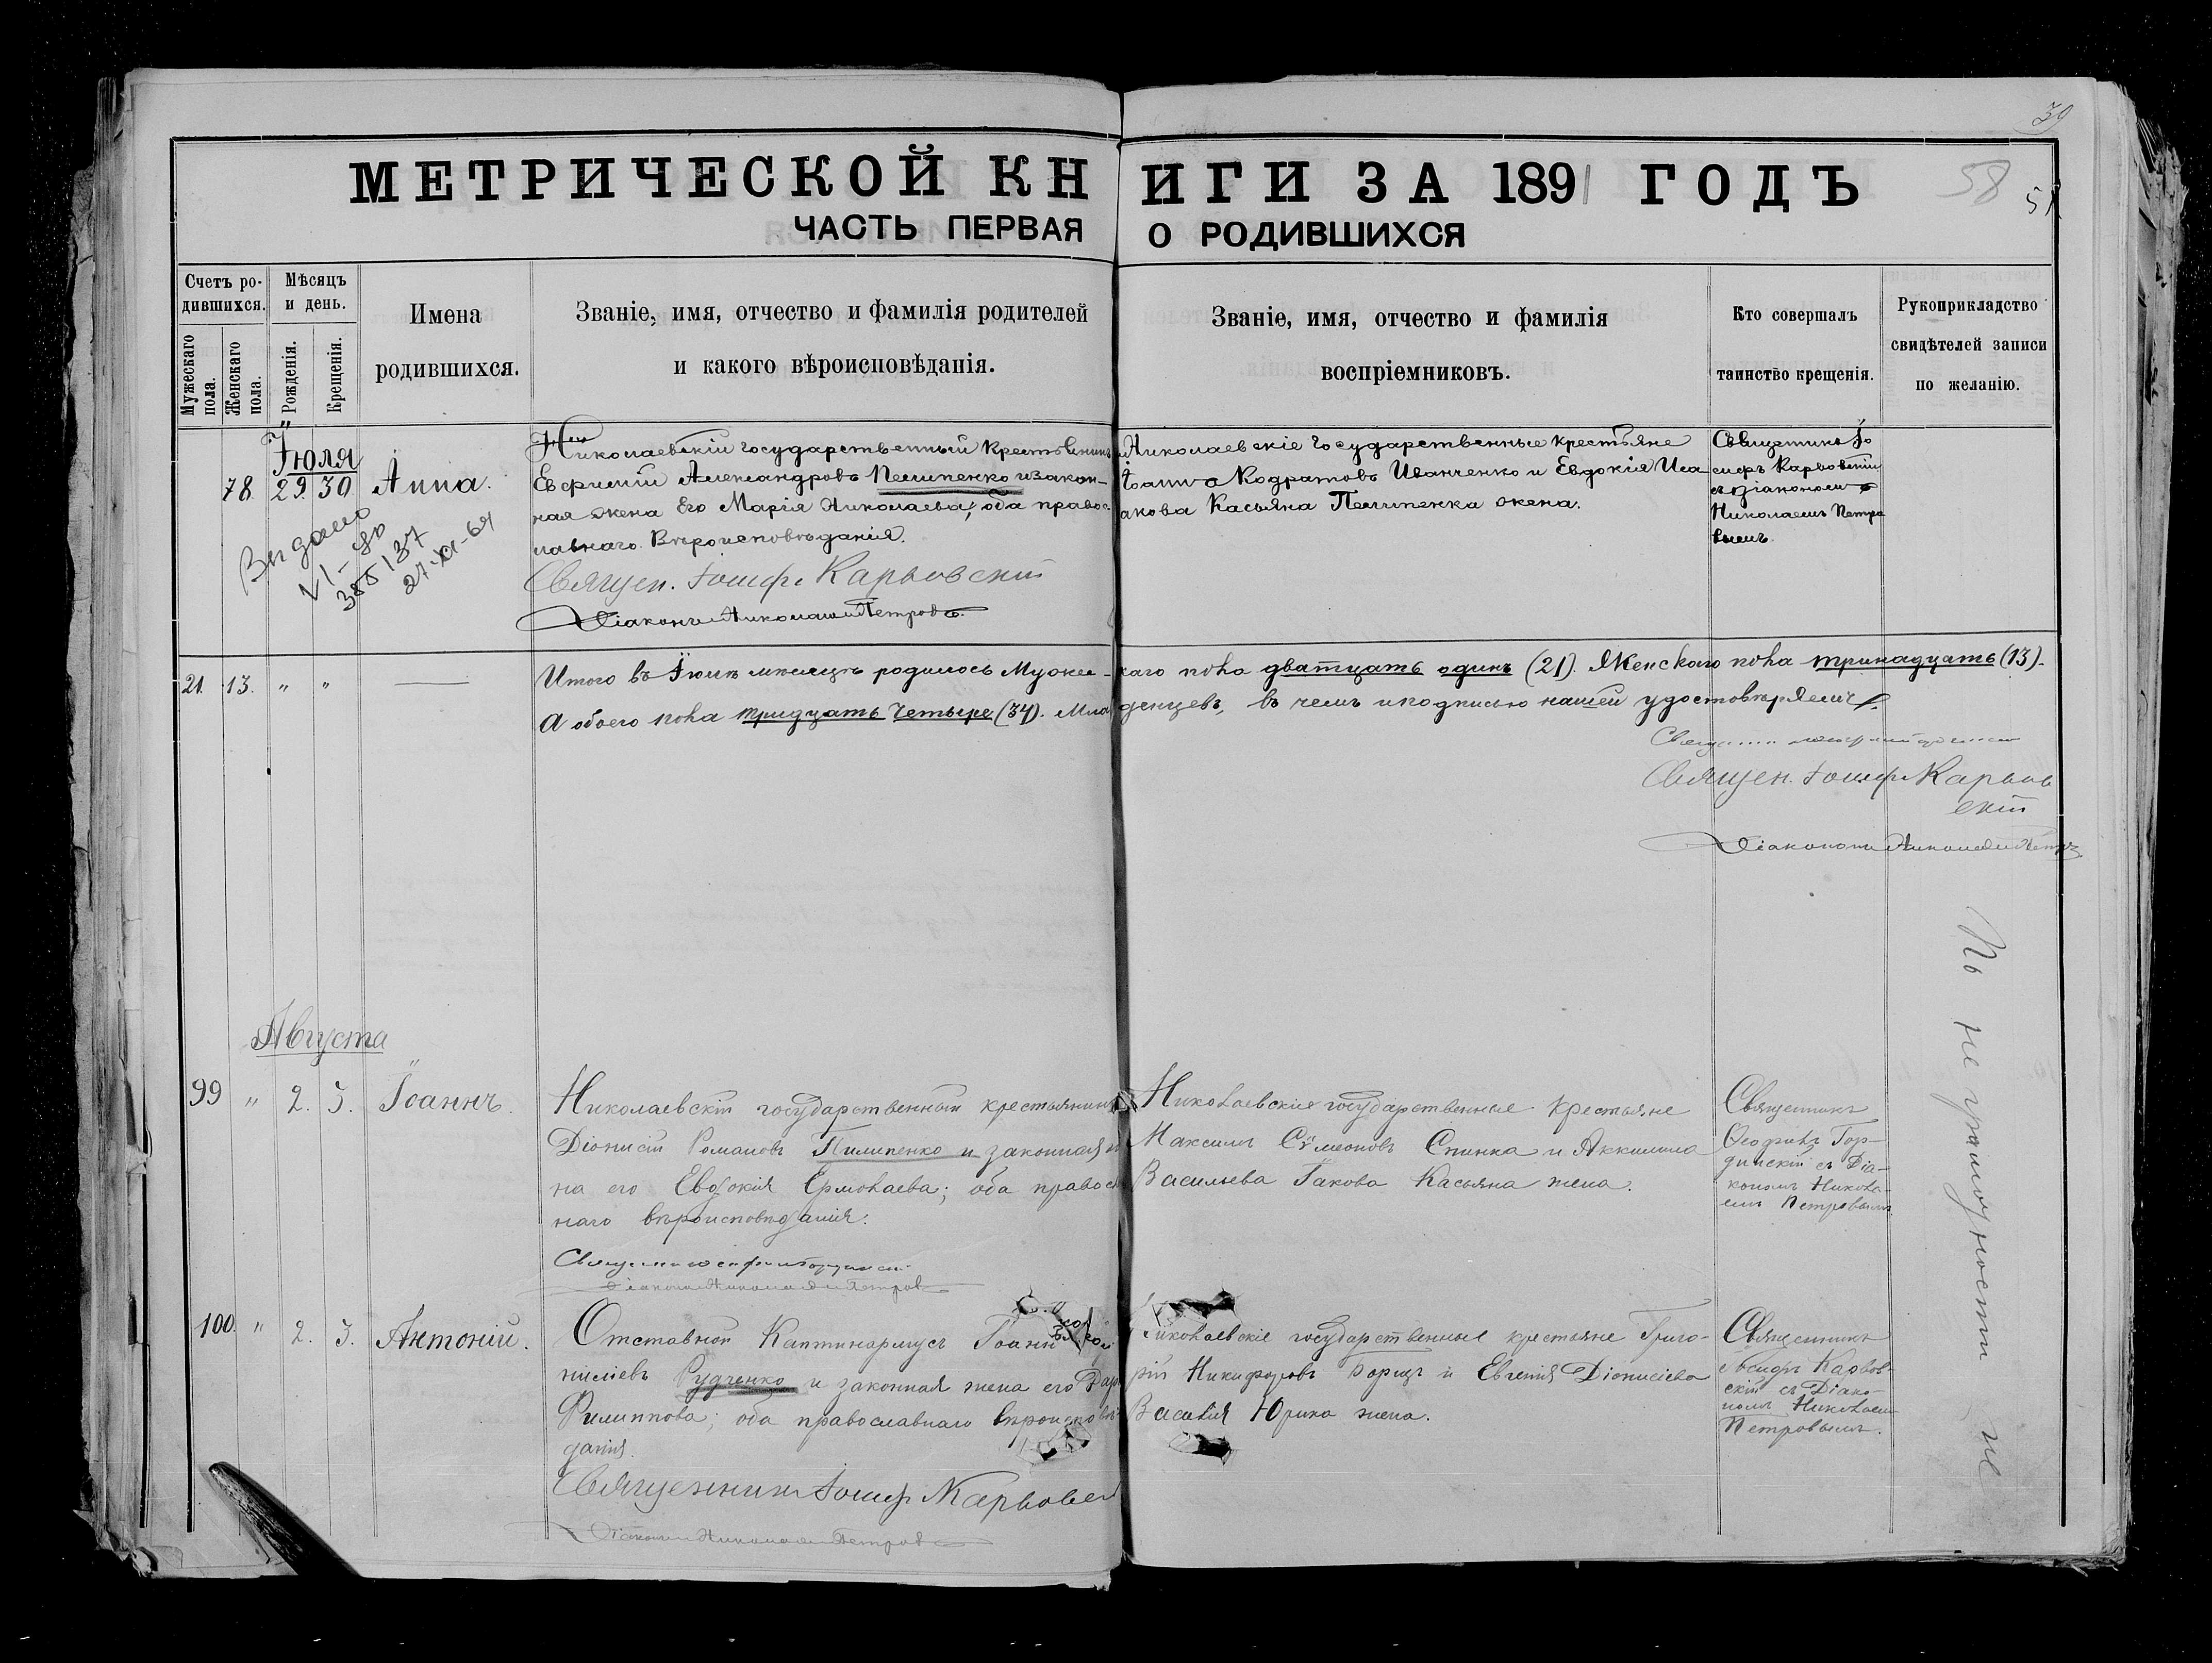 39
МЕТРИЧЕСКОЙ КНИГИ ЗА 1891 ГОДЪ
58
ЧАСТЬ ПЕРВАЯ О РОДИВШИХСЯ
Счетъ родившихся.
Мужескаго пола.
Женскаго пола.
Мѣсяцъ и день.
Рожденія.
Крещенія.
Имена
родившихся.
Званіе, имя, отчество и фамилія родителей
и какого вѣроисповѣданія.
Званіе, имя, отчество и фамилія
воспріемниковъ.
Кто совершалъ
таинство крещенія.
Рукоприкладство
свидѣтелей записи
по желанію.
Іюля
78. 29. 30 Анна.
Николаевскій государственный крестьянинъ
Евфимій Александровъ Пелипенко и закон-
ная жена его Марія Николаева; оба правос-
лавнаго Вѣроисповѣданія.
Священ. Іосифъ Карвовскій
Діаконъ Николай Петровъ.
Николаевскіе государственные крестьяне
Іоаннъ Кодратовъ Иванченко и Евдокія Иса
акова Касьяна Пелипенка жена.
Священникъ Іо
сифъ Карвовскій
съ діакономъ
Николаемъ Петро
вымъ
Выдано
VI-
385137
27-XI-64
21. 13. " "
Итого въ Іюлѣ мѣсяцѣ родилось Мужес-каго пола дватцать одинъ (21). Женскаго пола тринадцать (13).
А обоего пола тридцать четыре (34). Младенцевъ, въ чемъ и подписью нашей удостовѣряемъ.
Священ. Іосифъ Карвов
скій
Діаконъ Николай Петр
Августа
99 " 2. 3. Іоаннъ.
Николаевскій государственный крестьянинъ
Діонисій Романовъ Пилипенко и законная
на его Евдокія Ермолаева; оба правос
наго вѣроисповѣданія.
Діаконъ Николай Петровъ
Николаевскіе государственные крестьяне
Максимъ Сѵмеоновъ Спинка и Акилина
Васильева Іакова Касьяна жена.
Священникъ
Ѳеофилъ Гор-
динскій съ Діа-
кономъ Никола-
емъ Петровымъ.
100. " 2. 3. Антоній.
Отставной Каптинармусъ Іоаннъ
нисіевъ Рудченко и законная жена его Дар
Филиппова; оба православнаго вѣроисповѣ-
данія.
Священникъ Іосифъ Карвовск
Діаконъ Николай Петровъ
Николаевскіе государственные крестьяне Григо-
рій Никифоровъ Борщъ и Евгенія Діонисіева
Василія Юрика жена.
Священникъ
Іосифъ Карвов-
скій съ Діако-
номъ Николаем
Петровымъ.
По неграмотности не